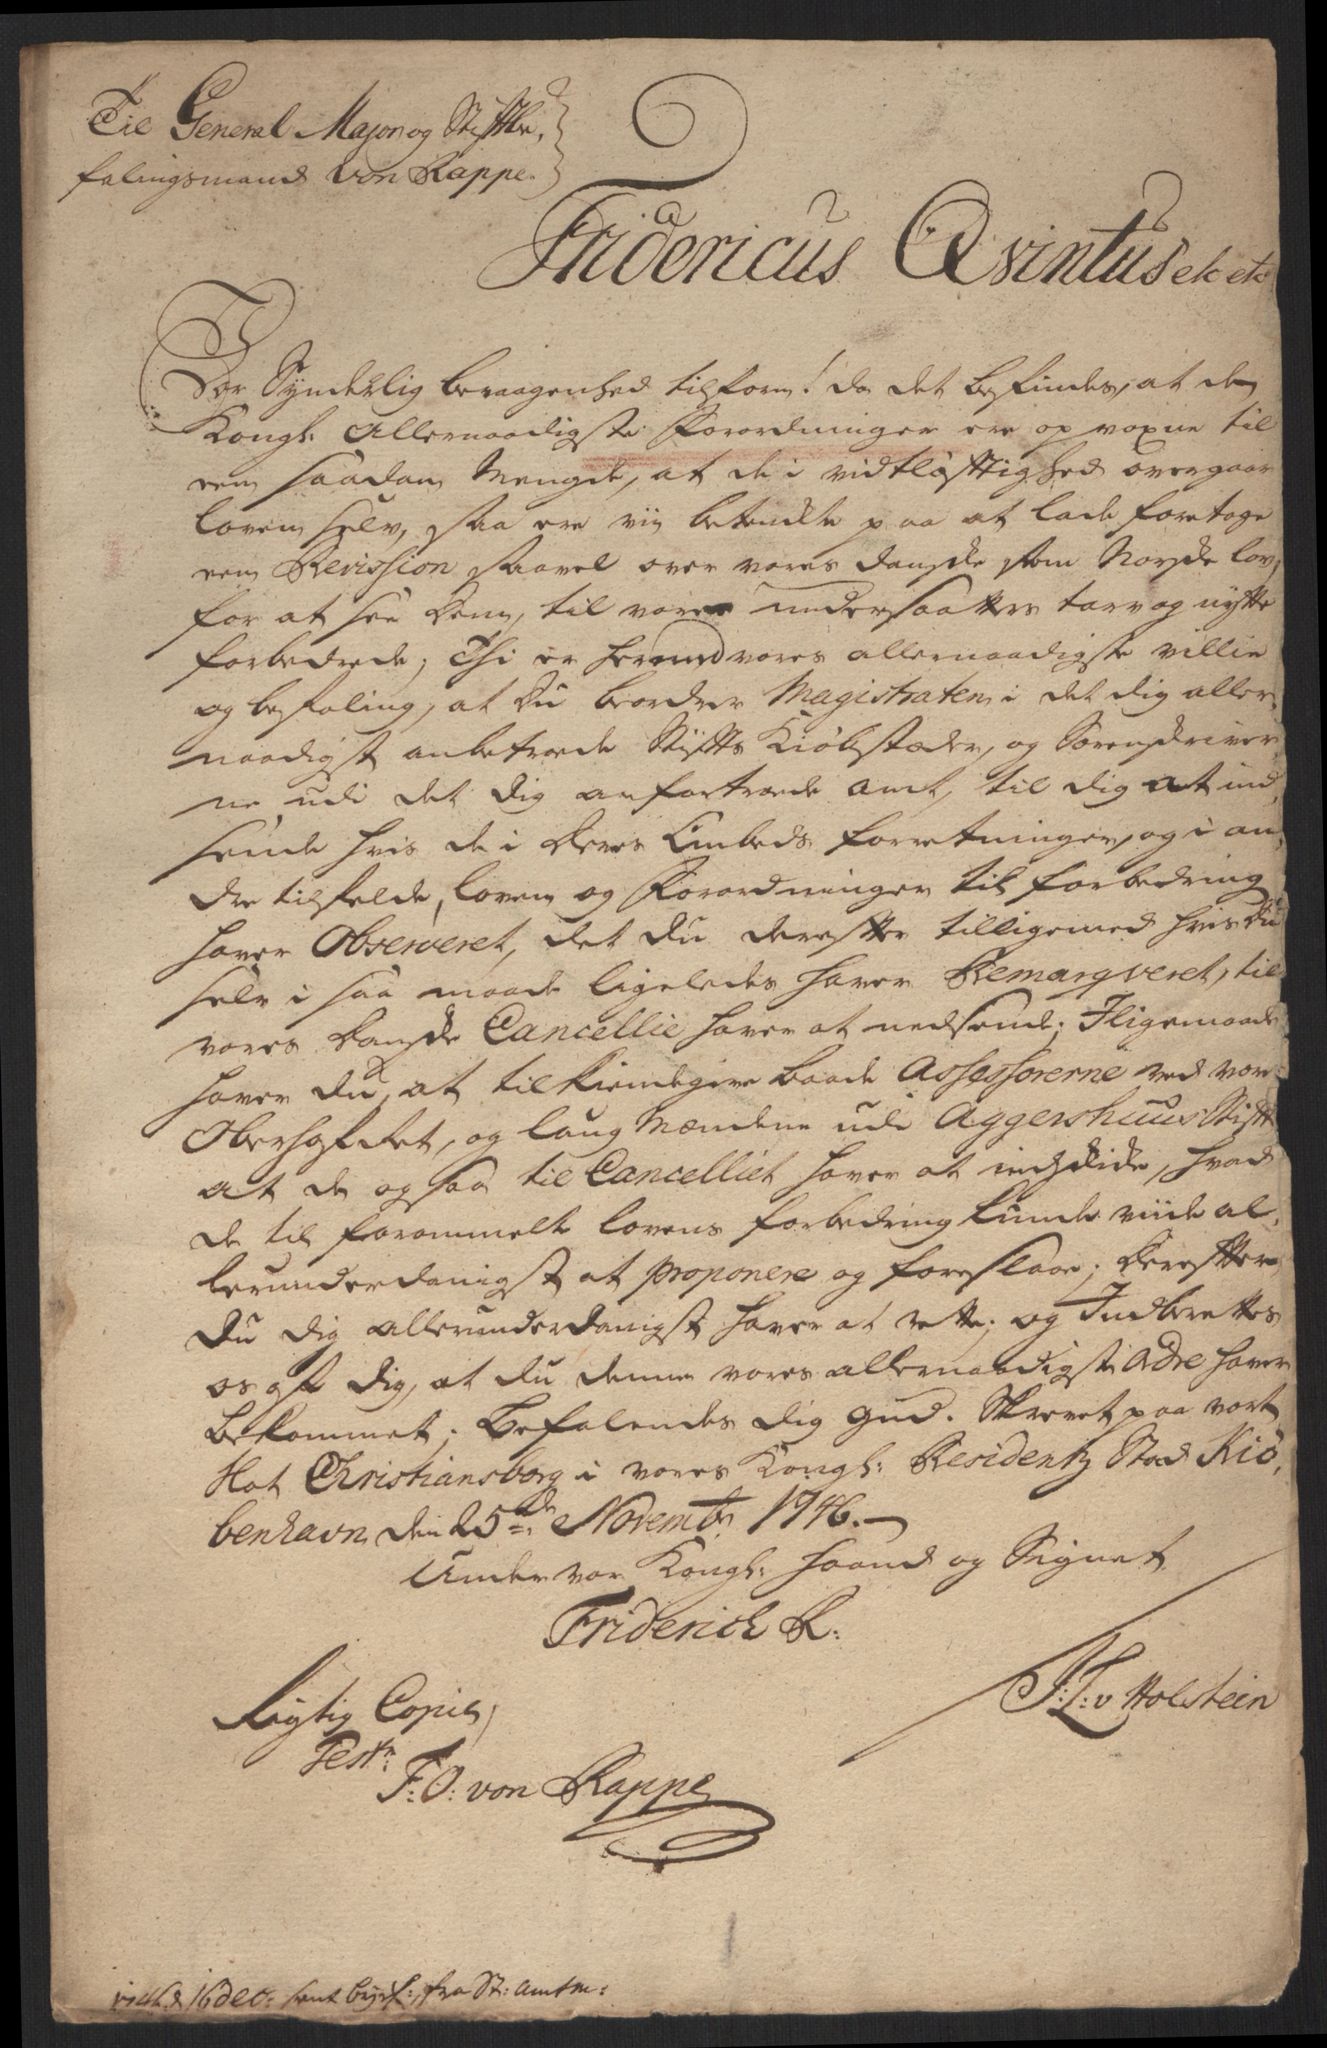 Til General Major og Stiftbe,
falingsmand von Rappe.
Fridericus Qvintus etc etc
Vor Synderlig bevaagenhed tilforn! da det befindes, at de
Kongl: Allernaadigste Forordninger ere op voxne til
een saadan Mengde, at de i vidtløftighed overgaar
loven selv, saa ere vii betenckte paa at lade foretage
een Revission saavel over vores danske som Norske lov,
for at see dem, til vores undersaatters tarv og nytte
forbedrede; Thi er hermed vores allernaadigste villie
og befaling, at du beordrer Magistraten i det dig aller,
naadigst anbetroede Stifts Kiøbstæder, og Sorenskriver,
ne udi det dig anfortroede Amt, til dig at ind,
sende hvis de i deres Embeds forretninger, og i an,
dre tilfelde, loven og Forordninger til forbedring
haver Observeret, det du derefter tilligemed hvis du
selv i saa maade ligeledes haver Remarqveret, til
vores danske Cancellie haver at nedsende; Iligemaade
haver du, at tilkiendegive baade Assessorerne ved vor
Oberhofret, og laug Mændene udi Aggershuus Stift
at de og saa til Cancelliet haver at indskicke, hvad
de til forommelte lovens forbedring kunde viide al,
lerunderdanigst at proponere og foreslaae; derefter
du dig allerunderdanigst haver at rette; og Indberettes
os af dig, at du denne vores allernaadigste Ordre haver
bekommet; Befalendes dig Gud. Skrevet paa vort
Slot Christiansborg i vores Kongl: Residentz Stad Kiø,
benhavn den 25de Novembr 1746.
Under vor Kongl: Haand og Signet
Friderich R:
J: L: v Holstein
Rigtig Copie,
Test:
F: O: von Rappe
1746 d 16 dec: sent byef:, fra St: amtm: